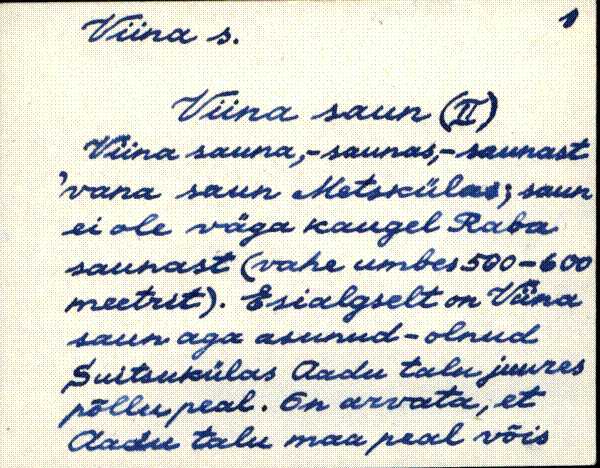 Viina s.
1
Viina saun (II)
Viina sauna,-saunas,-saunast
'vana saun Metskülas; saun
ei ole väga kaugel Raba
saunast (vahe umbes 500-600
meetrit). Esialgselt on Viina
saun aga asunud-olnud
Suitsukülas Aadu talu juures
põllu peal. On arvata, et
Aadu talu maa peal võis